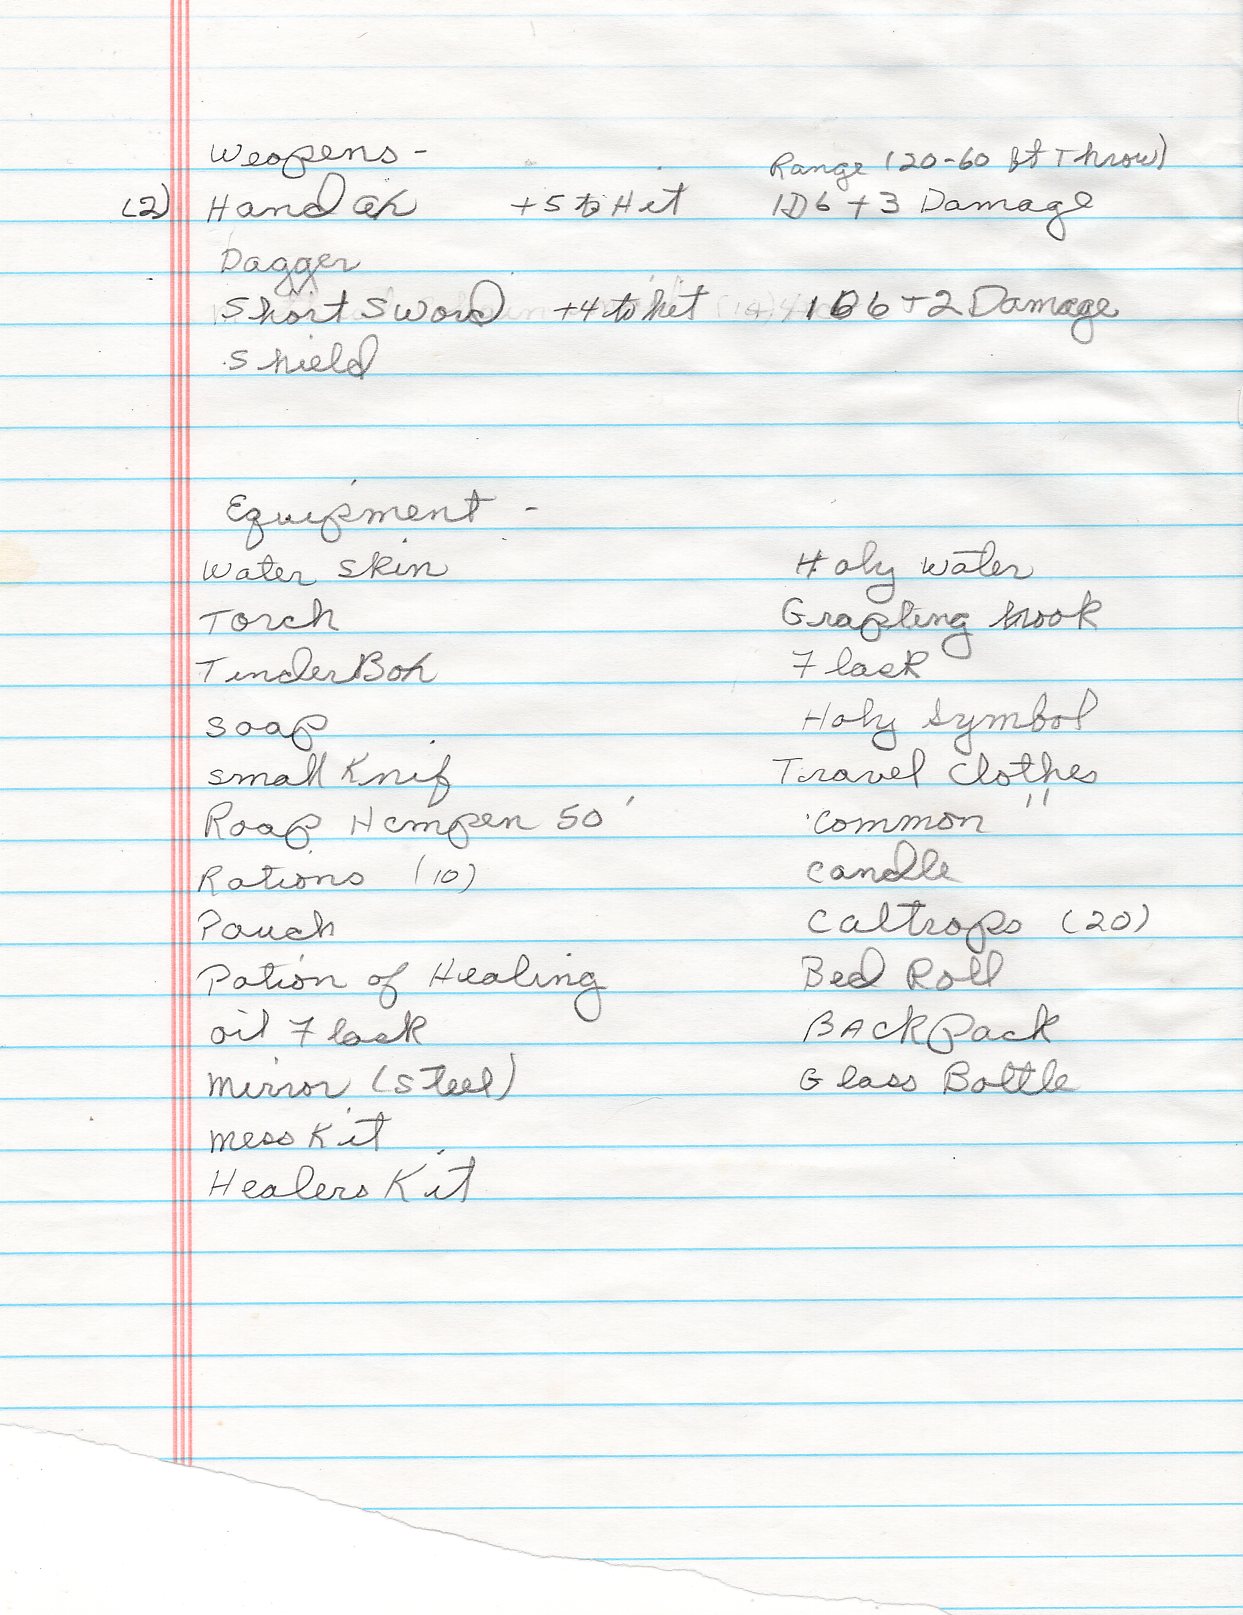 Weapens -
Range (20-60 ft Throw)
(2) Hand ax +5 to Hit 1D6 + 3 Damage
Dagger
Short Sword +4 to hit 1D6 + 2 Damage
Shield
Equipment -
Water Skin
Torch
TinderBox
Soap
Small Knif
Roap Hempen 50'
Rations (10)
Pouch
Potion of Healing
oil Flask
Mirror (Steel)
Mess Kit
Healers Kit
Holy Water
Grapling Hook
Flask
Holy Symbol
Travel Clothes
Common "
Candle
Caltrops (20)
Bed Roll
BACKPack
Glass Bottle